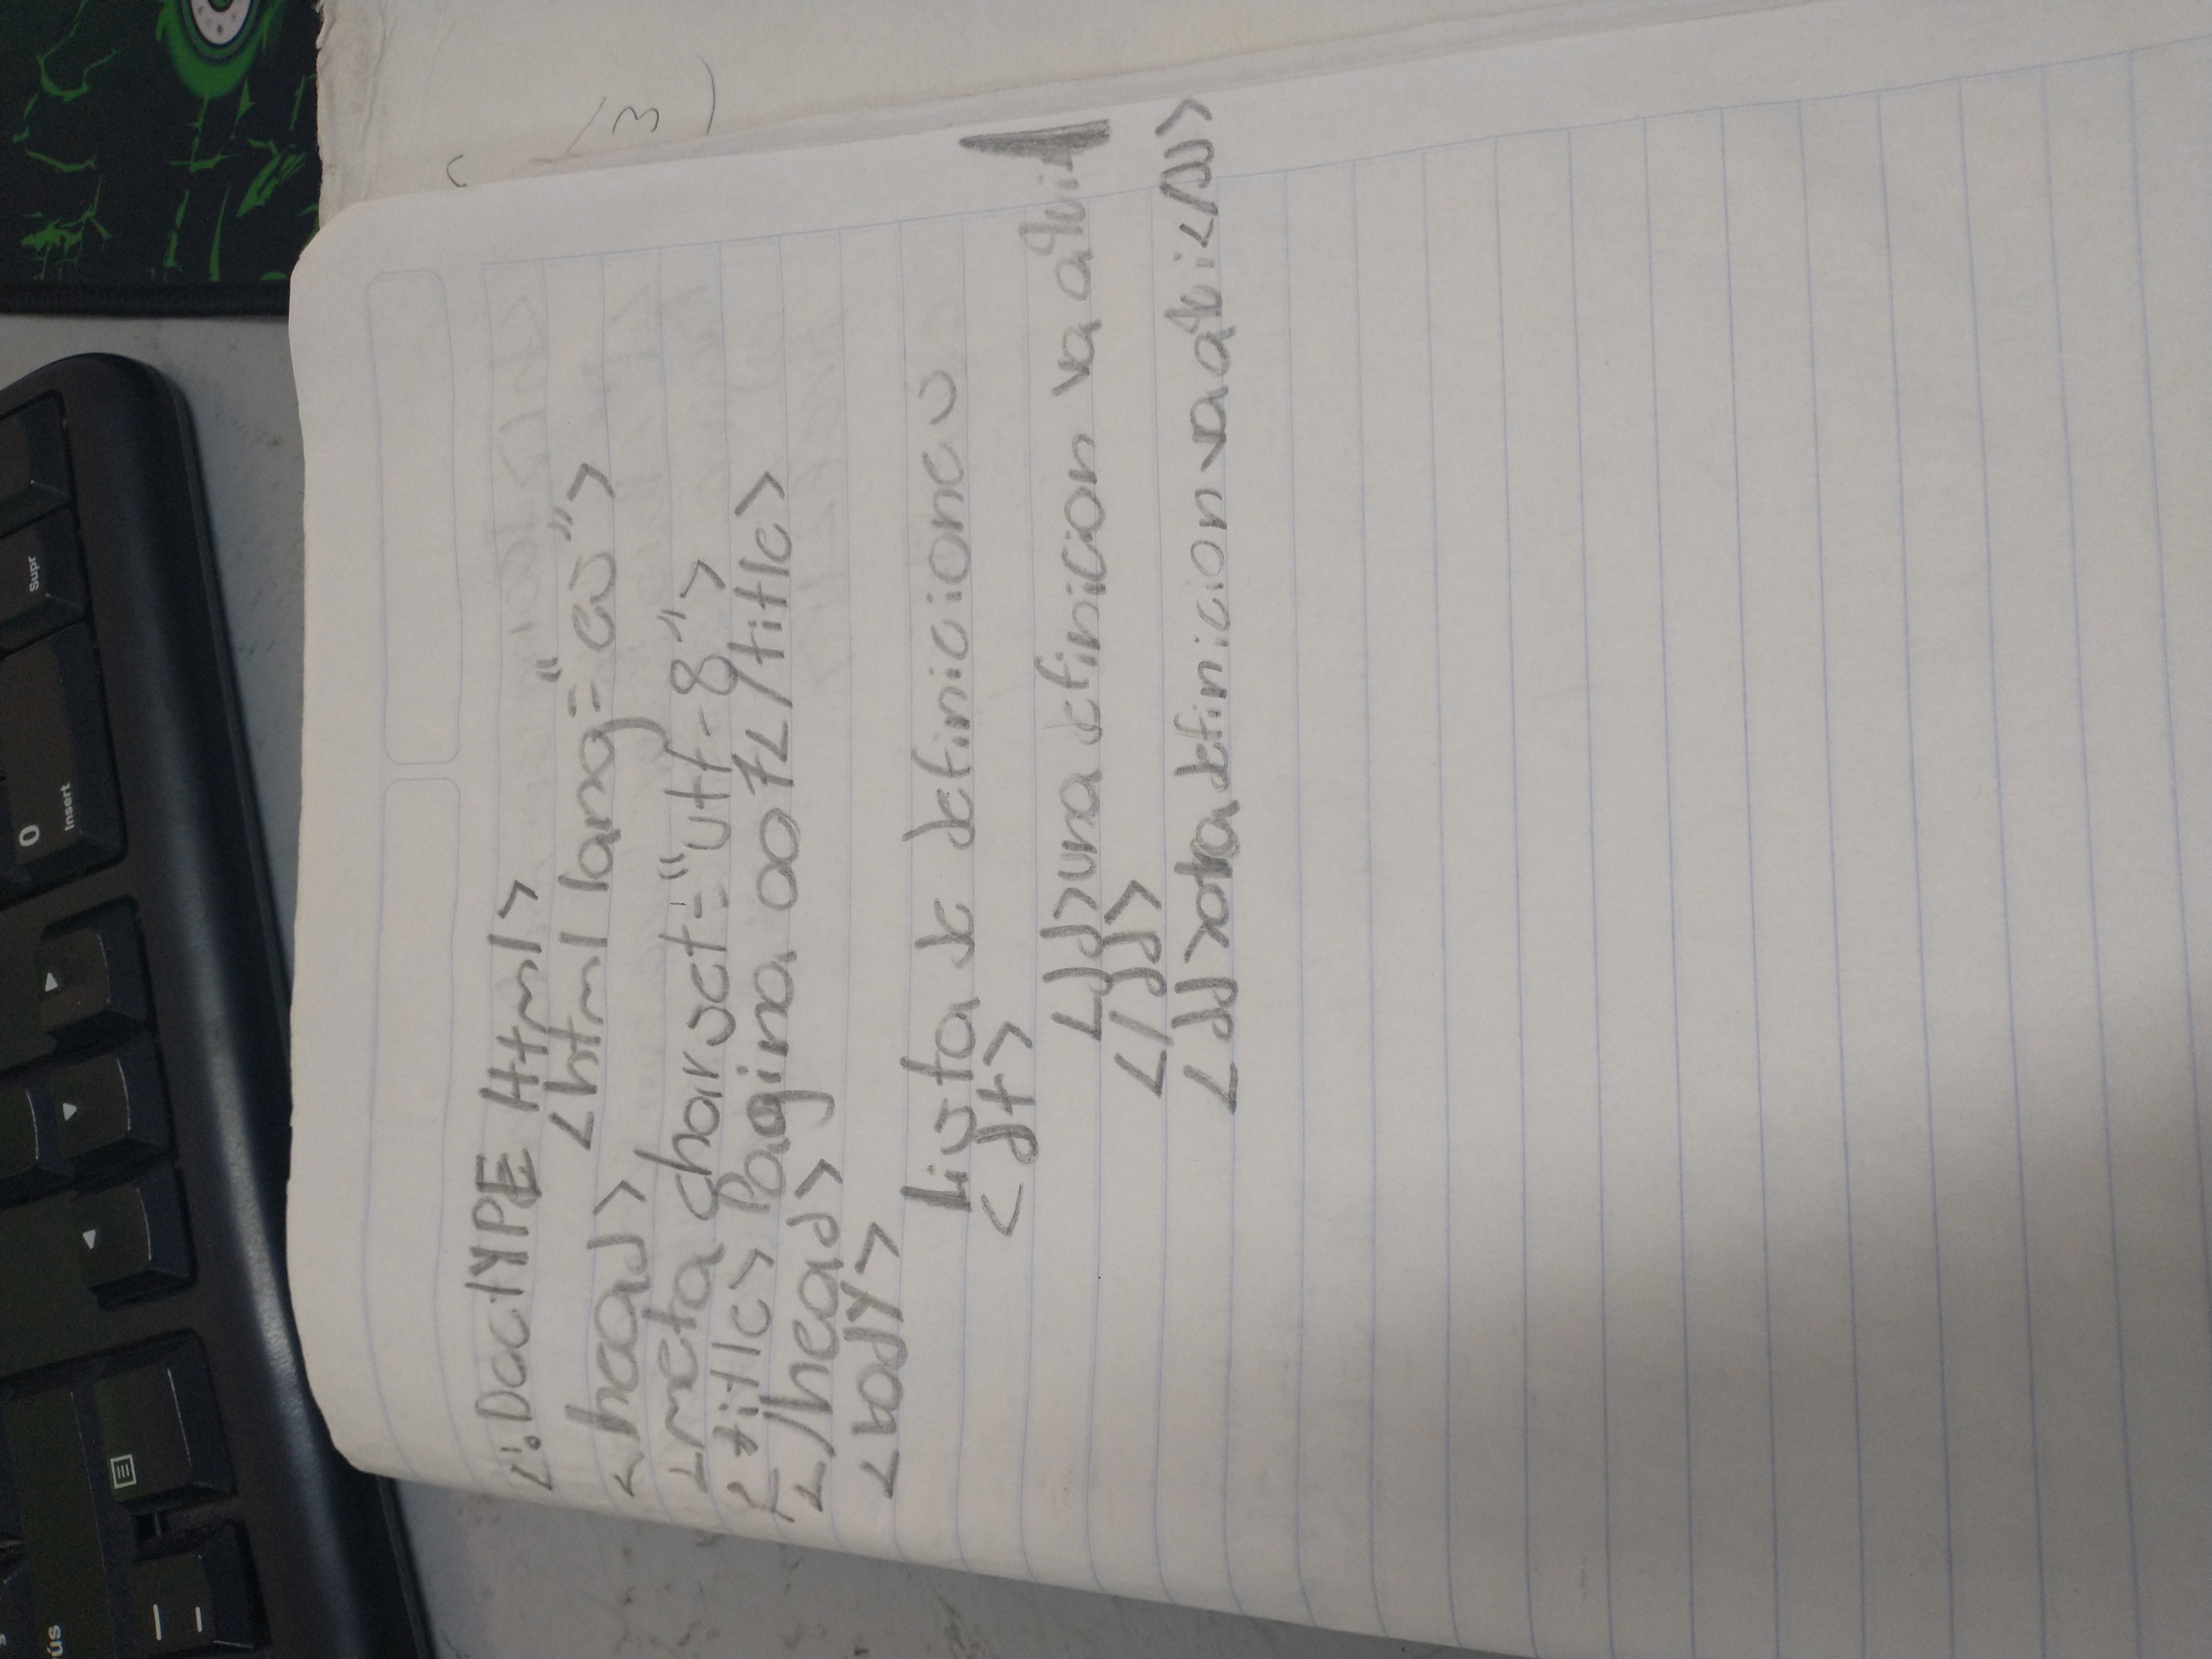 ús
0
Insert
Supr
<!DocTYPE Html>
<html lang="es">
<head>
<meta charset="utf-8">
<title> Pagina 007</title>
</head>
<body>
Lista de definiciones
<dt>
<dd>una definicion va aqui
</dd>
<dd>otra definicion va aqui</dd>